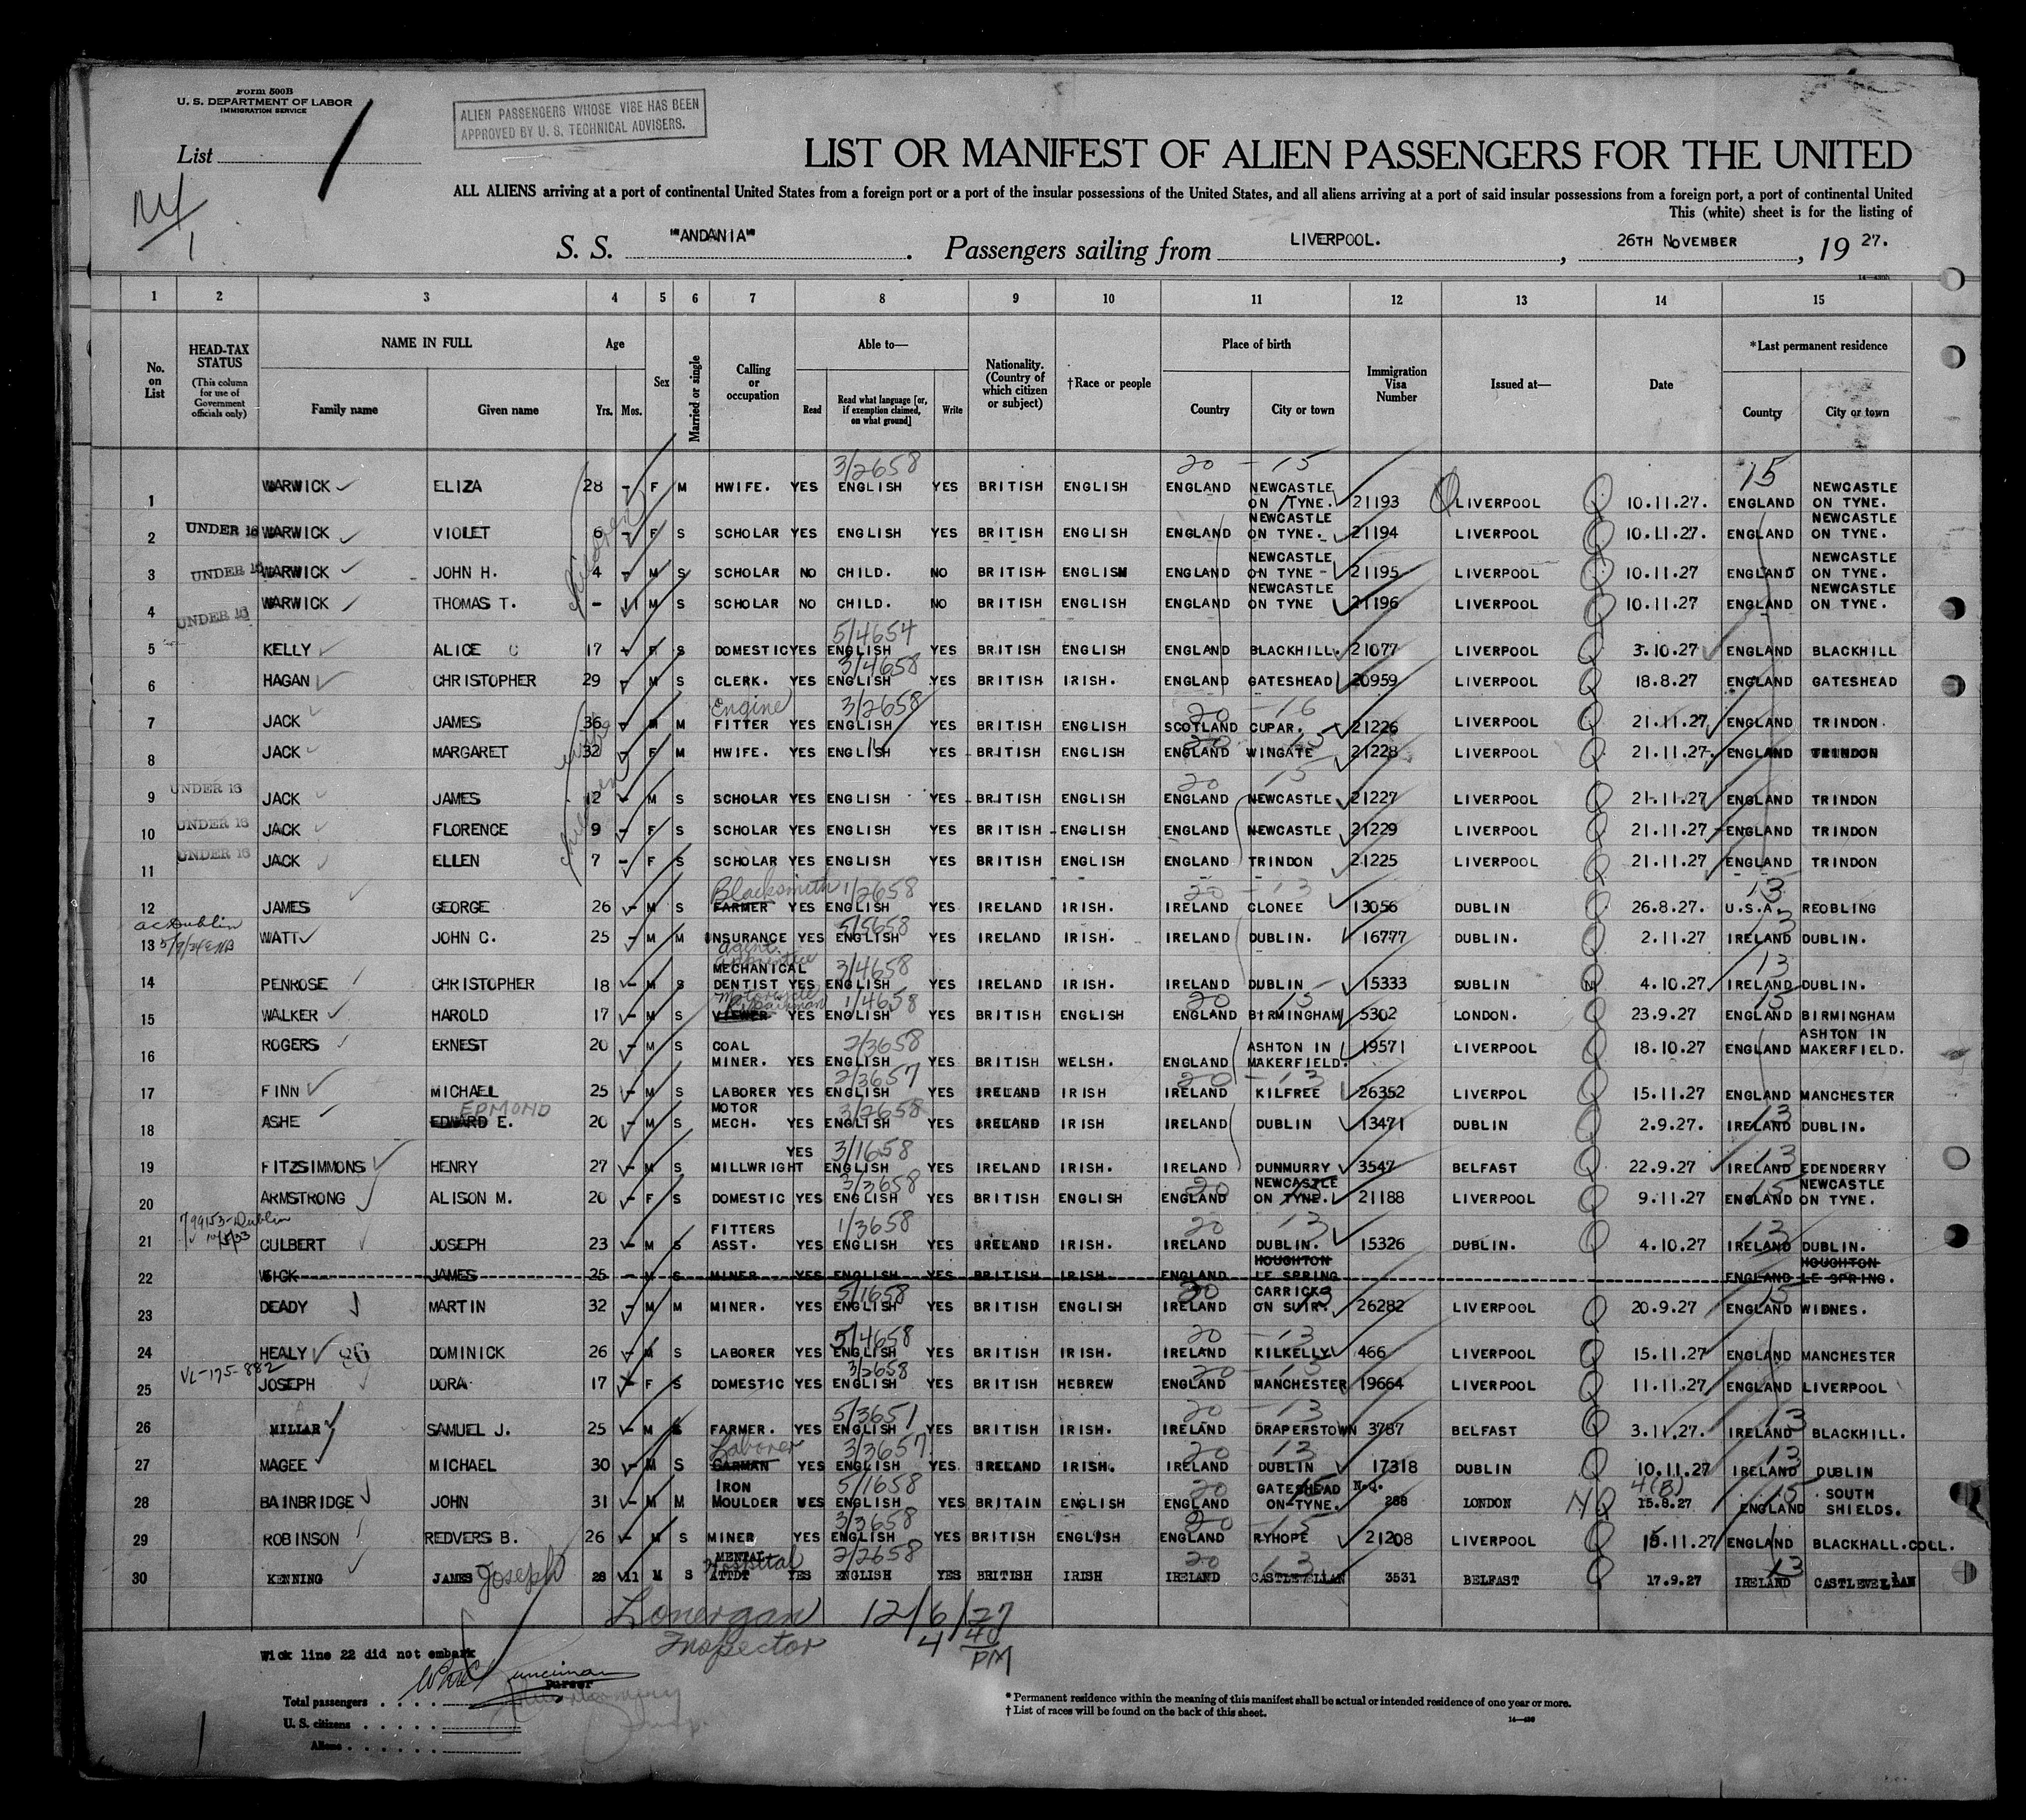 Form 500B
U. S. DEPARTMENT OF LABOR
IMMIGRATION SERVICE
ALIEN PASSENGERS WHOSE VISE HAS BEEN
APPROVED BY U. S. TECHNICAL ADVISERS.
List 1
LIST OR MANIFEST OF ALIEN PASSENGERS FOR THE UNITED
ALL ALIENS arriving at a port of continental United States from a foreign port or a port of the insular possessions of the United States, and all aliens arriving at a port of said insular possessions from a foreign port, a port of continental United
This (white) sheet is for the listing of
S. S. "ANDANIA". Passengers sailing from LIVERPOOL., 26TH NOVEMBER, 19 27.
1 2 3 4 5 6 7 8 9 10 11 12 13 14 15
No. on List
HEAD-TAX STATUS (This column for use of Government officials only)
NAME IN FULL
Family name Given name
Age
Yrs. Mos.
Sex
Married or single
Calling or occupation
Able to—
Read Read what language [or, if exemption claimed, on what ground] Write
Nationality. (Country of which citizen or subject)
†Race or people
Place of birth
Country City or town
Immigration Visa Number
Issued at—
Date
*Last permanent residence
Country City or town
3/2658 20 - 15 15
1 WARWICK ELIZA 28 - F M HWIFE. YES ENGLISH YES BRITISH ENGLISH ENGLAND NEWCASTLE ON TYNE. 21193 LIVERPOOL 10.11.27. ENGLAND NEWCASTLE ON TYNE.
2 UNDER 16 WARWICK VIOLET 6 - F S SCHOLAR YES ENGLISH YES BRITISH ENGLISH ENGLAND NEWCASTLE ON TYNE. 21194 LIVERPOOL 10.11.27. ENGLAND NEWCASTLE ON TYNE.
3 UNDER 16 WARWICK JOHN H. 4 - M S SCHOLAR NO CHILD. NO BRITISH ENGLISH ENGLAND NEWCASTLE ON TYNE 21195 LIVERPOOL 10.11.27 ENGLAND NEWCASTLE ON TYNE.
4 UNDER 16 WARWICK THOMAS T. - 11 M S SCHOLAR NO CHILD. NO BRITISH ENGLISH ENGLAND NEWCASTLE ON TYNE 21196 LIVERPOOL 10.11.27 ENGLAND NEWCASTLE ON TYNE.
5/4654
5 KELLY ALICE C 17 - F S DOMESTIC YES ENGLISH YES BRITISH ENGLISH ENGLAND BLACKHILL. 21077 LIVERPOOL 3.10.27 ENGLAND BLACKHILL
3/4658
6 HAGAN CHRISTOPHER 29 - M S CLERK. YES ENGLISH YES BRITISH IRISH. ENGLAND GATESHEAD 20959 LIVERPOOL 18.8.27 ENGLAND GATESHEAD
Engine 3/2658 20 - 16
7 JACK JAMES 36 - M M FITTER YES ENGLISH YES BRITISH ENGLISH SCOTLAND CUPAR. 21226 LIVERPOOL 21.11.27 ENGLAND TRINDON.
8 JACK MARGARET 32 - F M HWIFE. YES ENGLISH YES BRITISH ENGLISH ENGLAND WINGATE 21228 LIVERPOOL 21.11.27. ENGLAND TRINDON
20 15
9 UNDER 16 JACK JAMES 12 - M S SCHOLAR YES ENGLISH YES BRITISH ENGLISH ENGLAND NEWCASTLE 21227 LIVERPOOL 21.11.27 ENGLAND TRINDON
10 UNDER 16 JACK FLORENCE 9 - F S SCHOLAR YES ENGLISH YES BRITISH ENGLISH ENGLAND NEWCASTLE 21229 LIVERPOOL 21.11.27 ENGLAND TRINDON
11 UNDER 16 JACK ELLEN 7 - F S SCHOLAR YES ENGLISH YES BRITISH ENGLISH ENGLAND TRINDON 21225 LIVERPOOL 21.11.27 ENGLAND TRINDON
Blacksmith 1/2658 20 - 13 13
12 JAMES GEORGE 26 - M S FARMER YES ENGLISH YES IRELAND IRISH. IRELAND CLONEE 13056 DUBLIN 26.8.27. U.S.A. REOBLING
Dublin 5/5658
13 WATT JOHN C. 25 - M M INSURANCE YES ENGLISH YES IRELAND IRISH. IRELAND DUBLIN. 16777 DUBLIN. 2.11.27 IRELAND DUBLIN.
agent.
apprentice 3/4658 13
14 PENROSE CHRISTOPHER 18 - M S MECHANICAL DENTIST YES ENGLISH YES IRELAND IRISH. IRELAND DUBLIN 15333 DUBLIN 4.10.27 IRELAND DUBLIN.
Motorcycle Repairman 1/4658 20 15 15
15 WALKER HAROLD 17 - M S VIEWER YES ENGLISH YES BRITISH ENGLISH ENGLAND BIRMINGHAM 5302 LONDON. 23.9.27 ENGLAND BIRMINGHAM
2/3658
16 ROGERS ERNEST 20 - M S COAL MINER. YES ENGLISH YES BRITISH WELSH. ENGLAND ASHTON IN MAKERFIELD. 19571 LIVERPOOL 18.10.27 ENGLAND ASHTON IN MAKERFIELD.
2/3657 20 - 13
17 FINN MICHAEL 25 - M S LABORER YES ENGLISH YES IRELAND IRISH IRELAND KILFREE 26352 LIVERPOL 15.11.27 ENGLAND MANCHESTER
EDMOND 3/2658 13
18 ASHE EDWARD E. 20 - M S MOTOR MECH. YES ENGLISH YES IRELAND IRISH IRELAND DUBLIN 13471 DUBLIN 2.9.27. IRELAND DUBLIN.
3/1658 13
19 FITZSIMMONS HENRY 27 - M S MILLWRIGHT YES ENGLISH YES IRELAND IRISH. IRELAND DUNMURRY 3547 BELFAST 22.9.27 IRELAND EDENDERRY
3/3658 20 15
20 ARMSTRONG ALISON M. 20 - F S DOMESTIC YES ENGLISH YES BRITISH ENGLISH ENGLAND NEWCASTLE ON TYNE. 21188 LIVERPOOL 9.11.27 ENGLAND NEWCASTLE ON TYNE.
1/3658 20 13 13
21 CULBERT JOSEPH 23 - M S FITTERS ASST. YES ENGLISH YES IRELAND IRISH. IRELAND DUBLIN. 15326 DUBLIN. 4.10.27 IRELAND DUBLIN.
22 WICK JAMES 25 - M S MINER YES ENGLISH YES BRITISH IRISH. ENGLAND HOUGHTON LE SPRING ENGLAND HOUGHTON LE SPRING.
5/1658 20 13 15
23 DEADY MARTIN 32 - M M MINER. YES ENGLISH YES BRITISH ENGLISH IRELAND CARRICK ON SUIR. 26282 LIVERPOOL 20.9.27 ENGLAND WIDNES.
5/4658 20 - 13
24 HEALY 86 DOMINICK 26 - M S LABORER YES ENGLISH YES BRITISH IRISH. IRELAND KILKELLY 466 LIVERPOOL 15.11.27 ENGLAND MANCHESTER
VL-175-882 3/2658 20 - 13
25 JOSEPH DORA 17 - F S DOMESTIC YES ENGLISH YES BRITISH HEBREW ENGLAND MANCHESTER 19664 LIVERPOOL 11.11.27 ENGLAND LIVERPOOL
5/3651 20 - 13 13
26 MILLAR SAMUEL J. 25 - M S FARMER. YES ENGLISH YES BRITISH IRISH. IRELAND DRAPERSTOWN 3787 BELFAST 3.11.27. IRELAND BLACKHILL.
Laborer 3/3657 20 13 13
27 MAGEE MICHAEL 30 - M S CARMAN YES ENGLISH YES IRELAND IRISH. IRELAND DUBLIN 17318 DUBLIN 10.11.27 IRELAND DUBLIN
5/1658 20 15 4(B) 15
28 BAINBRIDGE JOHN 31 - M M IRON MOULDER YES ENGLISH YES BRITAIN ENGLISH ENGLAND GATESHEAD ON-TYNE. N.Q. 288 LONDON NQ 15.8.27 ENGLAND SOUTH SHIELDS.
3/3658 20 15
29 ROBINSON REDVERS B. 26 - M S MINER YES ENGLISH YES BRITISH ENGLISH ENGLAND RYHOPE 21208 LIVERPOOL 15.11.27 ENGLAND BLACKHALL.COLL.
Hospital 2/2658 20 13 13
30 KENNING JAMES Joseph 28 11 M S MENTAL ATTDT YES ENGLISH YES BRITISH IRISH IRELAND CASTLEWELLAN 3531 BELFAST 17.9.27 IRELAND CASTLEVELLAN
Lonergan 12/6/27
Inspector 4 40 PM
Wick line 22 did not embark
Purser
Total passengers
U. S. citizens
Aliens
* Permanent residence within the meaning of this manifest shall be actual or intended residence of one year or more.
† List of races will be found on the back of this sheet.